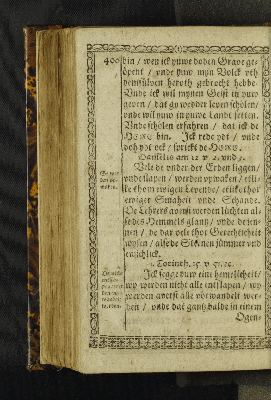 400
bin / wen ick yuwe doden Grave ge-
öpent / unde yuw myn Volck uth
densülven heruth gebrocht hebbe.
Unde ick wil mynen Geist in yuw
geven / dat gy wedder leven schölen/
unde wil yuw in yuwe Landt setten.
Unde schölen erfahren / dat ick de
HERE bin. Ick rede ydt / unde
do ydt ock / sprickt de HERE.
Danielis am 12 v 2. und 3.
Vele de under der Erden liggen/
unde slapen / werden upwaken / etli-
ke thom ewigen Levende / etlike thor
ewiger Smaheit unde Schande.
De Lehrers averst werden lüchten al-
se des Hemmels glantz / unde de yen-
nen / de dar vele thor Gerechticheit
wysen / alse de Sternen jümmer und
ewichlick.
1. Corinth. 15 v 51. 52.
Ick segge yuw eine hemelicheit/
wy werden nicht alle entslapen / wy
werden averst alle vörwandelt wer-
den / unde dat gantz balde in einem
Ogen-